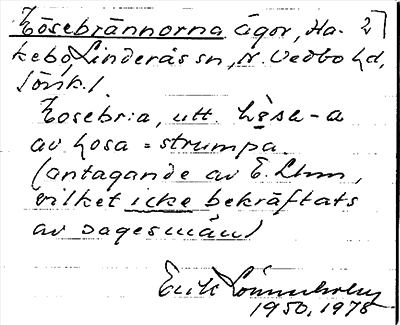 Hösebrännorna ägor, Ha- 2
kebo, Linderås sn, N. Vedbo hd,
Jönk.l.
Hosebr:a, utt. hɵse-a
av hosa = strumpa.
(antagande av E. Lhm,
vilket icke bekräftats
av sagesmän)
Erik Lönnerholm
1950, 1978